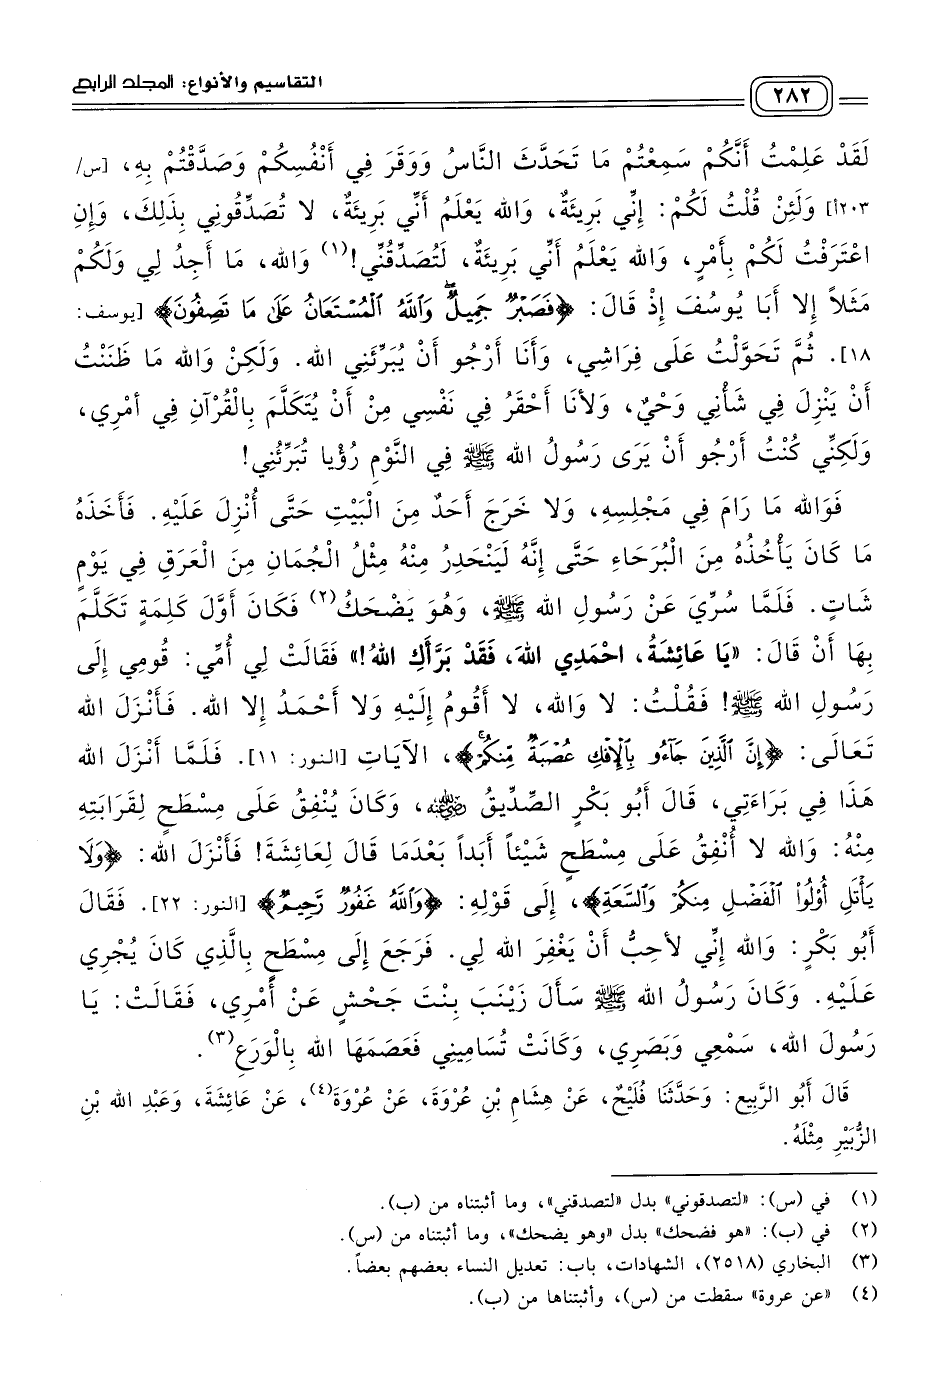 التقاسيم والأنواع: المجلد الرابع
٢٨٢
لَقَدْ عَلِمْتُ أَنَّكُمْ سَمِعْتُمْ مَا تَحَدَّثَ النَّاسُ وَوَقَرَ فِي أَنْفُسِكُمْ وَصَدَّقْتُمْ بِهِ، [س/
٢٠٣أ] وَلَئِنْ قُلْتُ لَكُمْ: إِنِّي بَرِيئَةٌ، وَالله يَعْلَمُ أَنِّي بَرِيئَةٌ، لا تُصَدِّقُونِي بِذَلِكَ، وَإِنِ
اعْتَرَفْتُ لَكُمْ بِأَمْرٍ، وَالله يَعْلَمُ أَنِّي بَرِيئَةٌ، لَتُصَدِّقُنِّي!(١) وَالله، مَا أَجِدُ لِي وَلَكُمْ
مَثَلاً إِلا أَبَا يُوسُفَ إِذْ قَالَ: ﴿فَصَبْرٌ جَمِيلٌ ۖ وَٱللَّهُ ٱلْمُسْتَعَانُ عَلَىٰ مَا تَصِفُونَ﴾ [يوسف:
١٨]. ثُمَّ تَحَوَّلْتُ عَلَى فِرَاشِي، وَأَنَا أَرْجُو أَنْ يُبَرِّئَنِي الله. وَلَكِنْ وَالله مَا ظَنَنْتُ
أَنْ يَنْزِلَ فِي شَأْنِي وَحْيٌ، وَلأَنَا أَحْقَرُ فِي نَفْسِي مِنْ أَنْ يُتَكَلَّمَ بِالْقُرْآنِ فِي أَمْرِي،
وَلَكِنِّي كُنْتُ أَرْجُو أَنْ يَرَى رَسُولُ الله ﷺ فِي النَّوْمِ رُؤْيا تُبَرِّئُنِي!
فَوَالله مَا رَامَ فِي مَجْلِسِهِ، وَلا خَرَجَ أَحَدٌ مِنَ الْبَيْتِ حَتَّى أُنْزِلَ عَلَيْهِ. فَأَخَذَهُ
مَا كَانَ يَأْخُذُهُ مِنَ الْبُرَحَاءِ حَتَّى إِنَّهُ لَيَنْحَدِرُ مِنْهُ مِثْلُ الْجُمَانِ مِنَ الْعَرَقِ فِي يَوْمٍ
شَاتٍ. فَلَمَّا سُرِّيَ عَنْ رَسُولِ الله ﷺ، وَهُوَ يَضْحَكُ(٢) فَكَانَ أَوَّلَ كَلِمَةٍ تَكَلَّمَ
بِهَا أَنْ قَالَ: «يَا عَائِشَةُ، احْمَدِي اللهَ، فَقَدْ بَرَّأَكِ اللهُ!» فَقَالَتْ لِي أُمِّي: قُومِي إِلَى
رَسُولِ الله ﷺ! فَقُلْتُ: لا وَالله، لا أَقُومُ إِلَيْهِ وَلا أَحْمَدُ إِلا الله. فَأَنْزَلَ الله
تَعَالَى: ﴿إِنَّ ٱلَّذِينَ جَآءُو بِٱلْإِفْكِ عُصْبَةٌ مِّنكُمْ ۚ﴾، الآيَاتِ [النور: ١١]. فَلَمَّا أَنْزَلَ الله
هَذَا فِي بَرَاءَتِي، قَالَ أَبُو بَكْرٍ الصِّدِّيقُ رضي الله عنه، وَكَانَ يُنْفِقُ عَلَى مِسْطَحٍ لِقَرَابَتِهِ
مِنْهُ: وَالله لا أُنْفِقُ عَلَى مِسْطَحٍ شَيْئاً أَبَداً بَعْدَمَا قَالَ لِعَائِشَةَ! فَأَنْزَلَ الله: ﴿وَلَا
يَأْتَلِ أُوْلُواْ ٱلْفَضْلِ مِنكُمْ وَٱلسَّعَةِ﴾، إِلَى قَوْلِهِ: ﴿وَٱللَّهُ غَفُورٌ رَّحِيمٌ﴾ [النور: ٢٢]. فَقَالَ
أَبُو بَكْرٍ: وَالله إِنِّي لأحِبُّ أَنْ يَغْفِرَ الله لِي. فَرَجَعَ إِلَى مِسْطَحٍ بِالَّذِي كَانَ يُجْرِي
عَلَيْهِ. وَكَانَ رَسُولُ الله ﷺ سَأَلَ زَيْنَبَ بِنْتَ جَحْشٍ عَنْ أَمْرِي، فَقَالَتْ: يَا
رَسُولَ الله، سَمْعِي وَبَصَرِي، وَكَانَتْ تُسَامِينِي فَعَصَمَهَا الله بِالْوَرَعِ(٣).
قَالَ أَبُو الرَّبِيعِ: وَحَدَّثَنَا فُلَيْحٌ، عَنْ هِشَامِ بْنِ عُرْوَةَ، عَنْ عُرْوَةَ(٤)، عَنْ عَائِشَةَ، وَعَبْدِ الله بْنِ
الزُّبَيْرِ مِثْلَهُ.
(١) في (س): «لتصدقوني» بدل «لتصدقني»، وما أثبتناه من (ب).
(٢) في (ب): «هو فضحك» بدل «وهو يضحك»، وما أثبتناه من (س).
(٣) البخاري (٢٥١٨)، الشهادات، باب: تعديل النساء بعضهم بعضاً.
(٤) «عن عروة» سقطت من (س)، وأثبتناها من (ب).